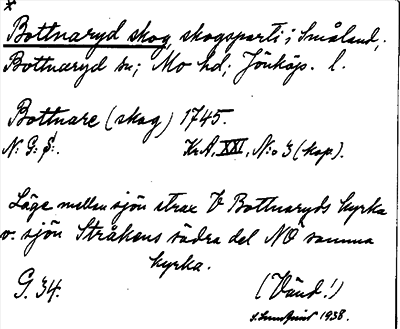 *
Bottnaryd skog, skogsparti i Småland,
Bottnaryd sn; Mo hd; Jönköp. l.
Bottnare (skog) 1745.
N: G: $:. KrA, XXI, N:o 3 (kop).
Läge mellan sjön strax V Bottnaryds kyrka
o. sjön Stråkens södra del NO samma
kyrka.
G. 34. (Vänd!)
1938.